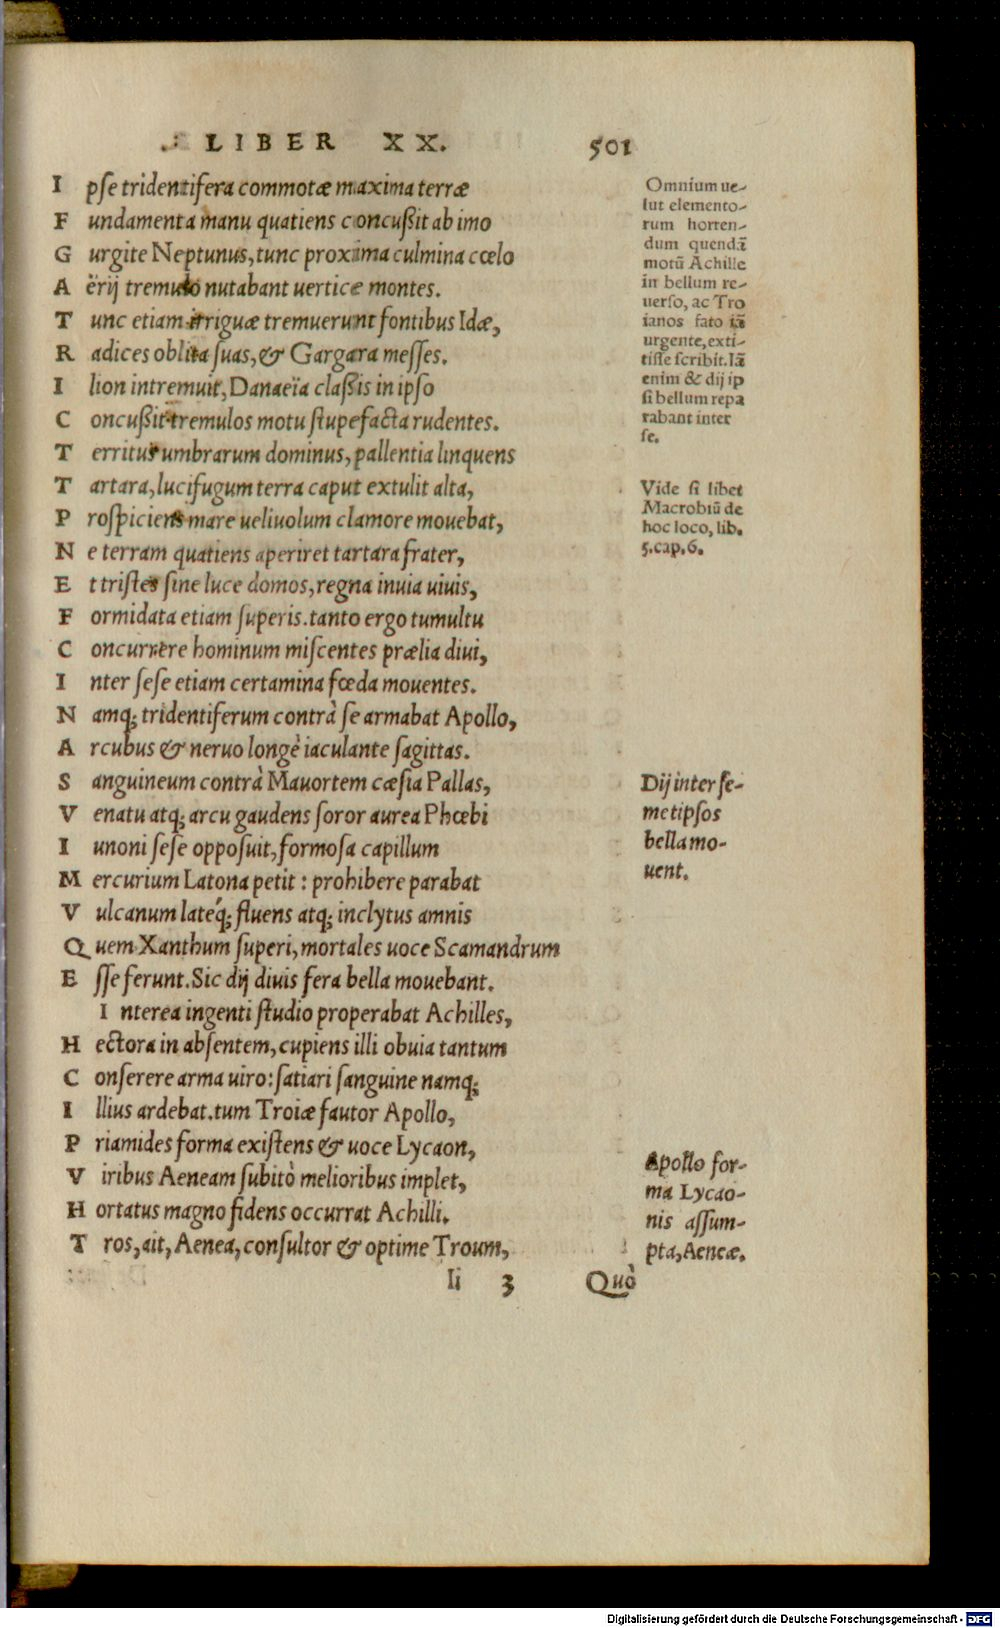 LIBER XX. 501
Ipse tridentifera commotæ maxima terræ
Fundamenta manu quatiens concußit ab imo
Gurgite Neptunus, tunc proxima culmina cœlo
Aërij tremulo nutabant uertice montes.
Tunc etiam irriguæ tremuerunt fontibus Idæ,
Radices oblita suas, & Gargara messes.
Ilion intremuit, Danaeïa claßis in ipso
Concußit tremulos motu stupefacta rudentes.
Territus umbrarum dominus, pallentia linquens
Tartara, lucifugum terra caput extulit alta,
Prospiciens mare ueliuolum clamore mouebat,
Ne terram quatiens aperiret tartara frater,
Et tristes sine luce domos, regna inuia uiuis,
Formidata etiam superis. tanto ergo tumultu
Concurrere hominum miscentes prælia diui,
Inter sese etiam certamina fœda mouentes.
Namq; tridentiferum contrà se armabat Apollo,
Arcubus & neruo longè iaculante sagittas.
Sanguineum contrà Mauortem cæsia Pallas,
Venatu atq; arcu gaudens soror aurea Phœbi
Iunoni sese opposuit, formosa capillum
Mercurium Latona petit: prohibere parabat
Vulcanum latéq; fluens atq; inclytus amnis
Quem Xanthum superi, mortales uoce Scamandrum
Esse ferunt. Sic dij diuis fera bella mouebant.
Interea ingenti studio properabat Achilles,
Hectora in absentem, cupiens illi obuia tantum
Conserere arma uiro: satiari sanguine namq;
Illius ardebat. tum Troiæ fautor Apollo,
Priamides forma existens & uoce Lycaon,
Viribus Aeneam subitò melioribus implet,
Hortatus magno fidens occurrat Achilli.
Tros, ait, Aenea, consultor & optime Troum,
Ii 3 Quò
Omnium ue-
lut elemento-
rum horren-
dum quendã
motũ Achille
in bellum re-
uerso, ac Tro
ianos fato iã
urgente, exti-
tisse scribit. Iã
enim & dij ip
si bellum repa
rabant inter
se.
Vide si libet
Macrobiũ de
hoc loco, lib.
5. cap. 6.
Dij inter se-
metipsos
bella mo-
uent.
Apollo for-
ma Lycao-
nis assum-
pta, Aeneæ.
Digitalisierung gefördert durch die Deutsche Forschungsgemeinschaft - DFG